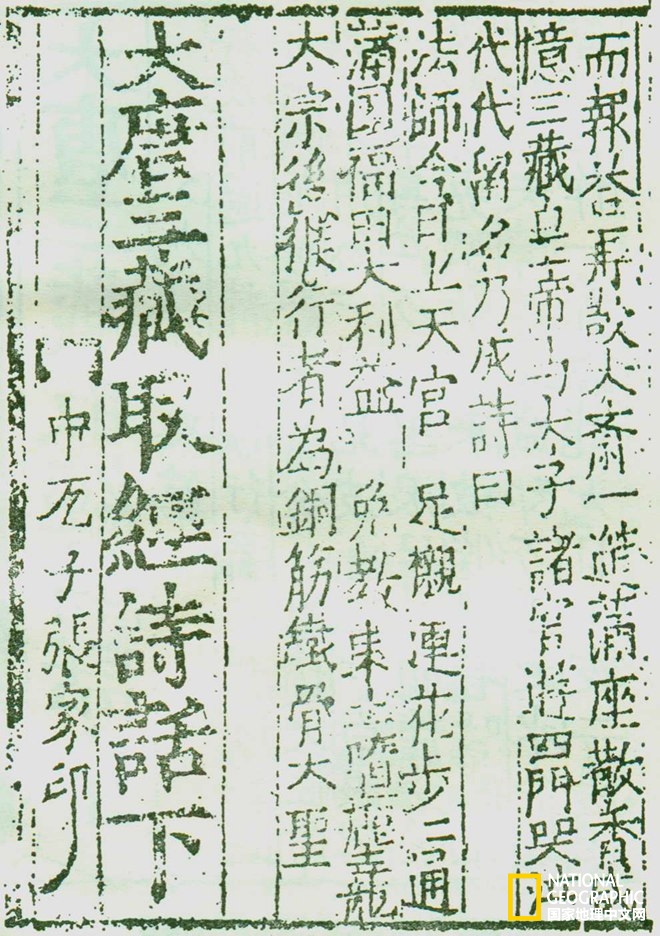 而報答再設大齋一筵滿座散香
憶三藏皇帝与太子諸官遊四門哭
代代留名乃成詩曰
法師今日上天官　足櫬連花步〻通
滿國福田大利益　免教東土墮塵籠
太宗後猴行者為銅筋鐵骨大聖
大唐三藏取經詩話下
中瓦子張家印
NATIONAL
GEOGRAPHIC
国家地理中文网